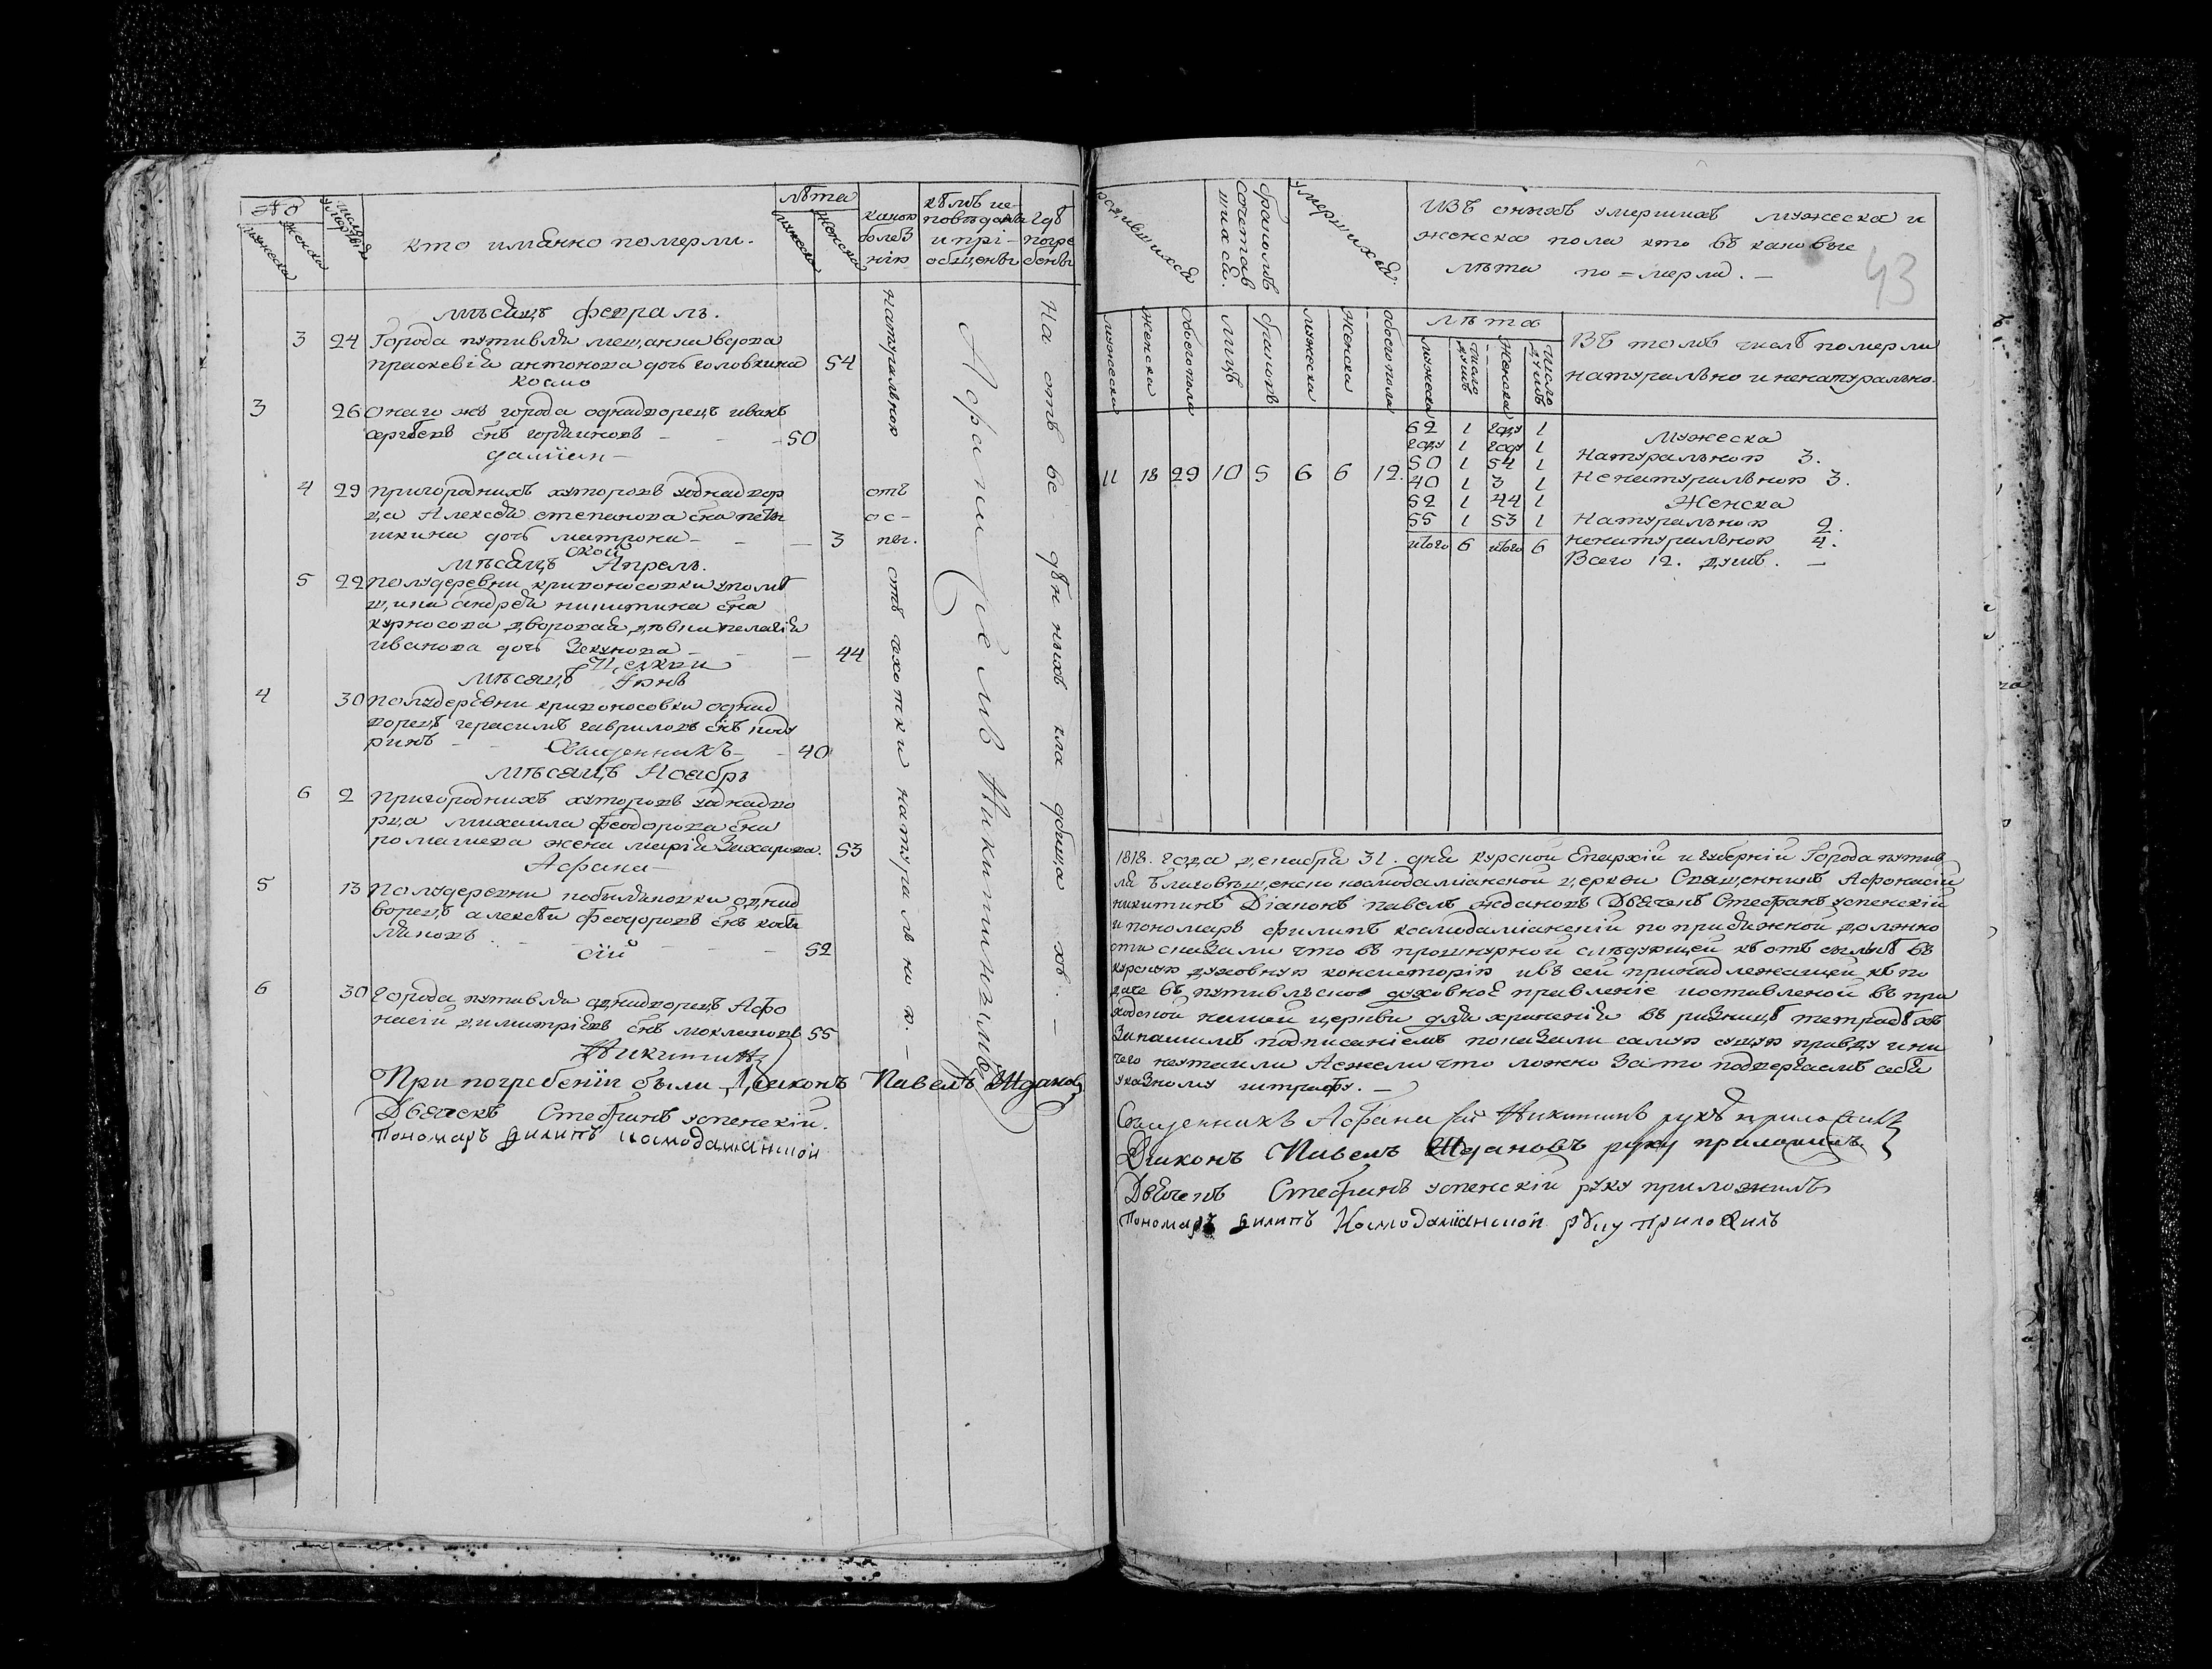 №
мужеска
женска
число умерш
кто имянно померли.
лѣта
мужеска
женска
какою болѣзнію
кѣмъ исповѣданы и пріобщенны
гдѣ погребенны
мѣсяцъ февраль.
3 24 Города путивля мещанки вдова
праскевія антонова дочь головкина 54
космо
3 26 Онаго жъ города однодворецъ иванъ
сергѣевъ снъ юрдановъ - - - 50
даміан-
4 29 пригородныхъ хуторовъ однодвор
ца Алексѣя степанова сна
дочь матрона - - - 3
ской
мѣсяцъ Апрель.
5 22 полудеревни кривоносовки у помѣ
щика андрея никитина сна
курносова дворовая дѣвка пелагія
иванова дочь - - 44
Церкви
мѣсяцъ Іюнь
4 30 полудеревни кривоносовки однод
ворецъ герасимъ гавриловъ снъ подү
ринъ - - Священникъ - - 40
мѣсяцъ Ноябрь
6 2 Пригородныхъ хуторовъ однодво
рца михаила феодорова сна
ромашева жена марія Захарова. 53
Афана-
5 13 Полудеревни однод
ворецъ алексѣй феодоровъ снъ
сій - - 52
6 30 города путивля однодворецъ Афо
насій димитріевъ снъ 55
Никитинъ
натуральною
отъ ос- пы.
отъ чахотки натурально.-
Афанасіемъ Никитинымъ
На отъ ве де нныхъ кла дбища хъ.-
При погребеніи были Діаконъ Павелъ Ждановъ
Дьячекъ Стефанъ успенскій.
Пономаръ Филипъ Космодаміанской
родившихся
браками сочетавшихся.
умершихся.
Изъ оныхъ умершихъ мужеска и
женска пола кто въ каковые
лѣта по=мерли.-
43
мужеска женска обоегополу лицъ браковъ мужеска женска обоегополу
лѣта
мужеска число душъ женска число душъ
Въ томъ числѣ померли
натурально и ненатурально.
11 18 29 10 5 6 6 12.
62 1 году 1
году 1 году 1
50 1 54 1
40 1 3 1
52 1 44 1
55 1 53 1
итого 6 итого 6
Мужеска
Натуральною 3.
Ненатуральною 3.
Женска
Натуральною 2.
ненатуральною 4.
Всего 12. душъ. -
1818. года декабря 31. дня курской Епархіи и губерніи Города путив
ля Благовѣщенско космодаміанской церкви Священникъ Афонасій
никитинъ Діаконъ павелъ ждановъ Дьячекъ Стефанъ успенскій
и пономарь филипъ космодаміанскій по присяжной должно
сти сказали что въ прошнурной слѣдующей къ отъ сылкѣ въ
курскую духовную консисторію и въ сей принадлежащей къ по
даче въ путивльское духовное правленіе и оставленой въ при
ходской нашей церкви для храненія въ ризницѣ тетрадѣхъ
Занашимъ подписаніемъ показали самую сущую правду и ни
чего неутаили Аежели что ложно Зато подвергаемъ себя
указному штрафу. -
Священникъ Афанасій Никитинъ руку приложилъ
Діаконъ Павелъ Ждановъ руку приложилъ
Дьячекъ Стефанъ успенскій руку приложилъ
Пономаръ Филипъ Космодаміанской руку приложилъ